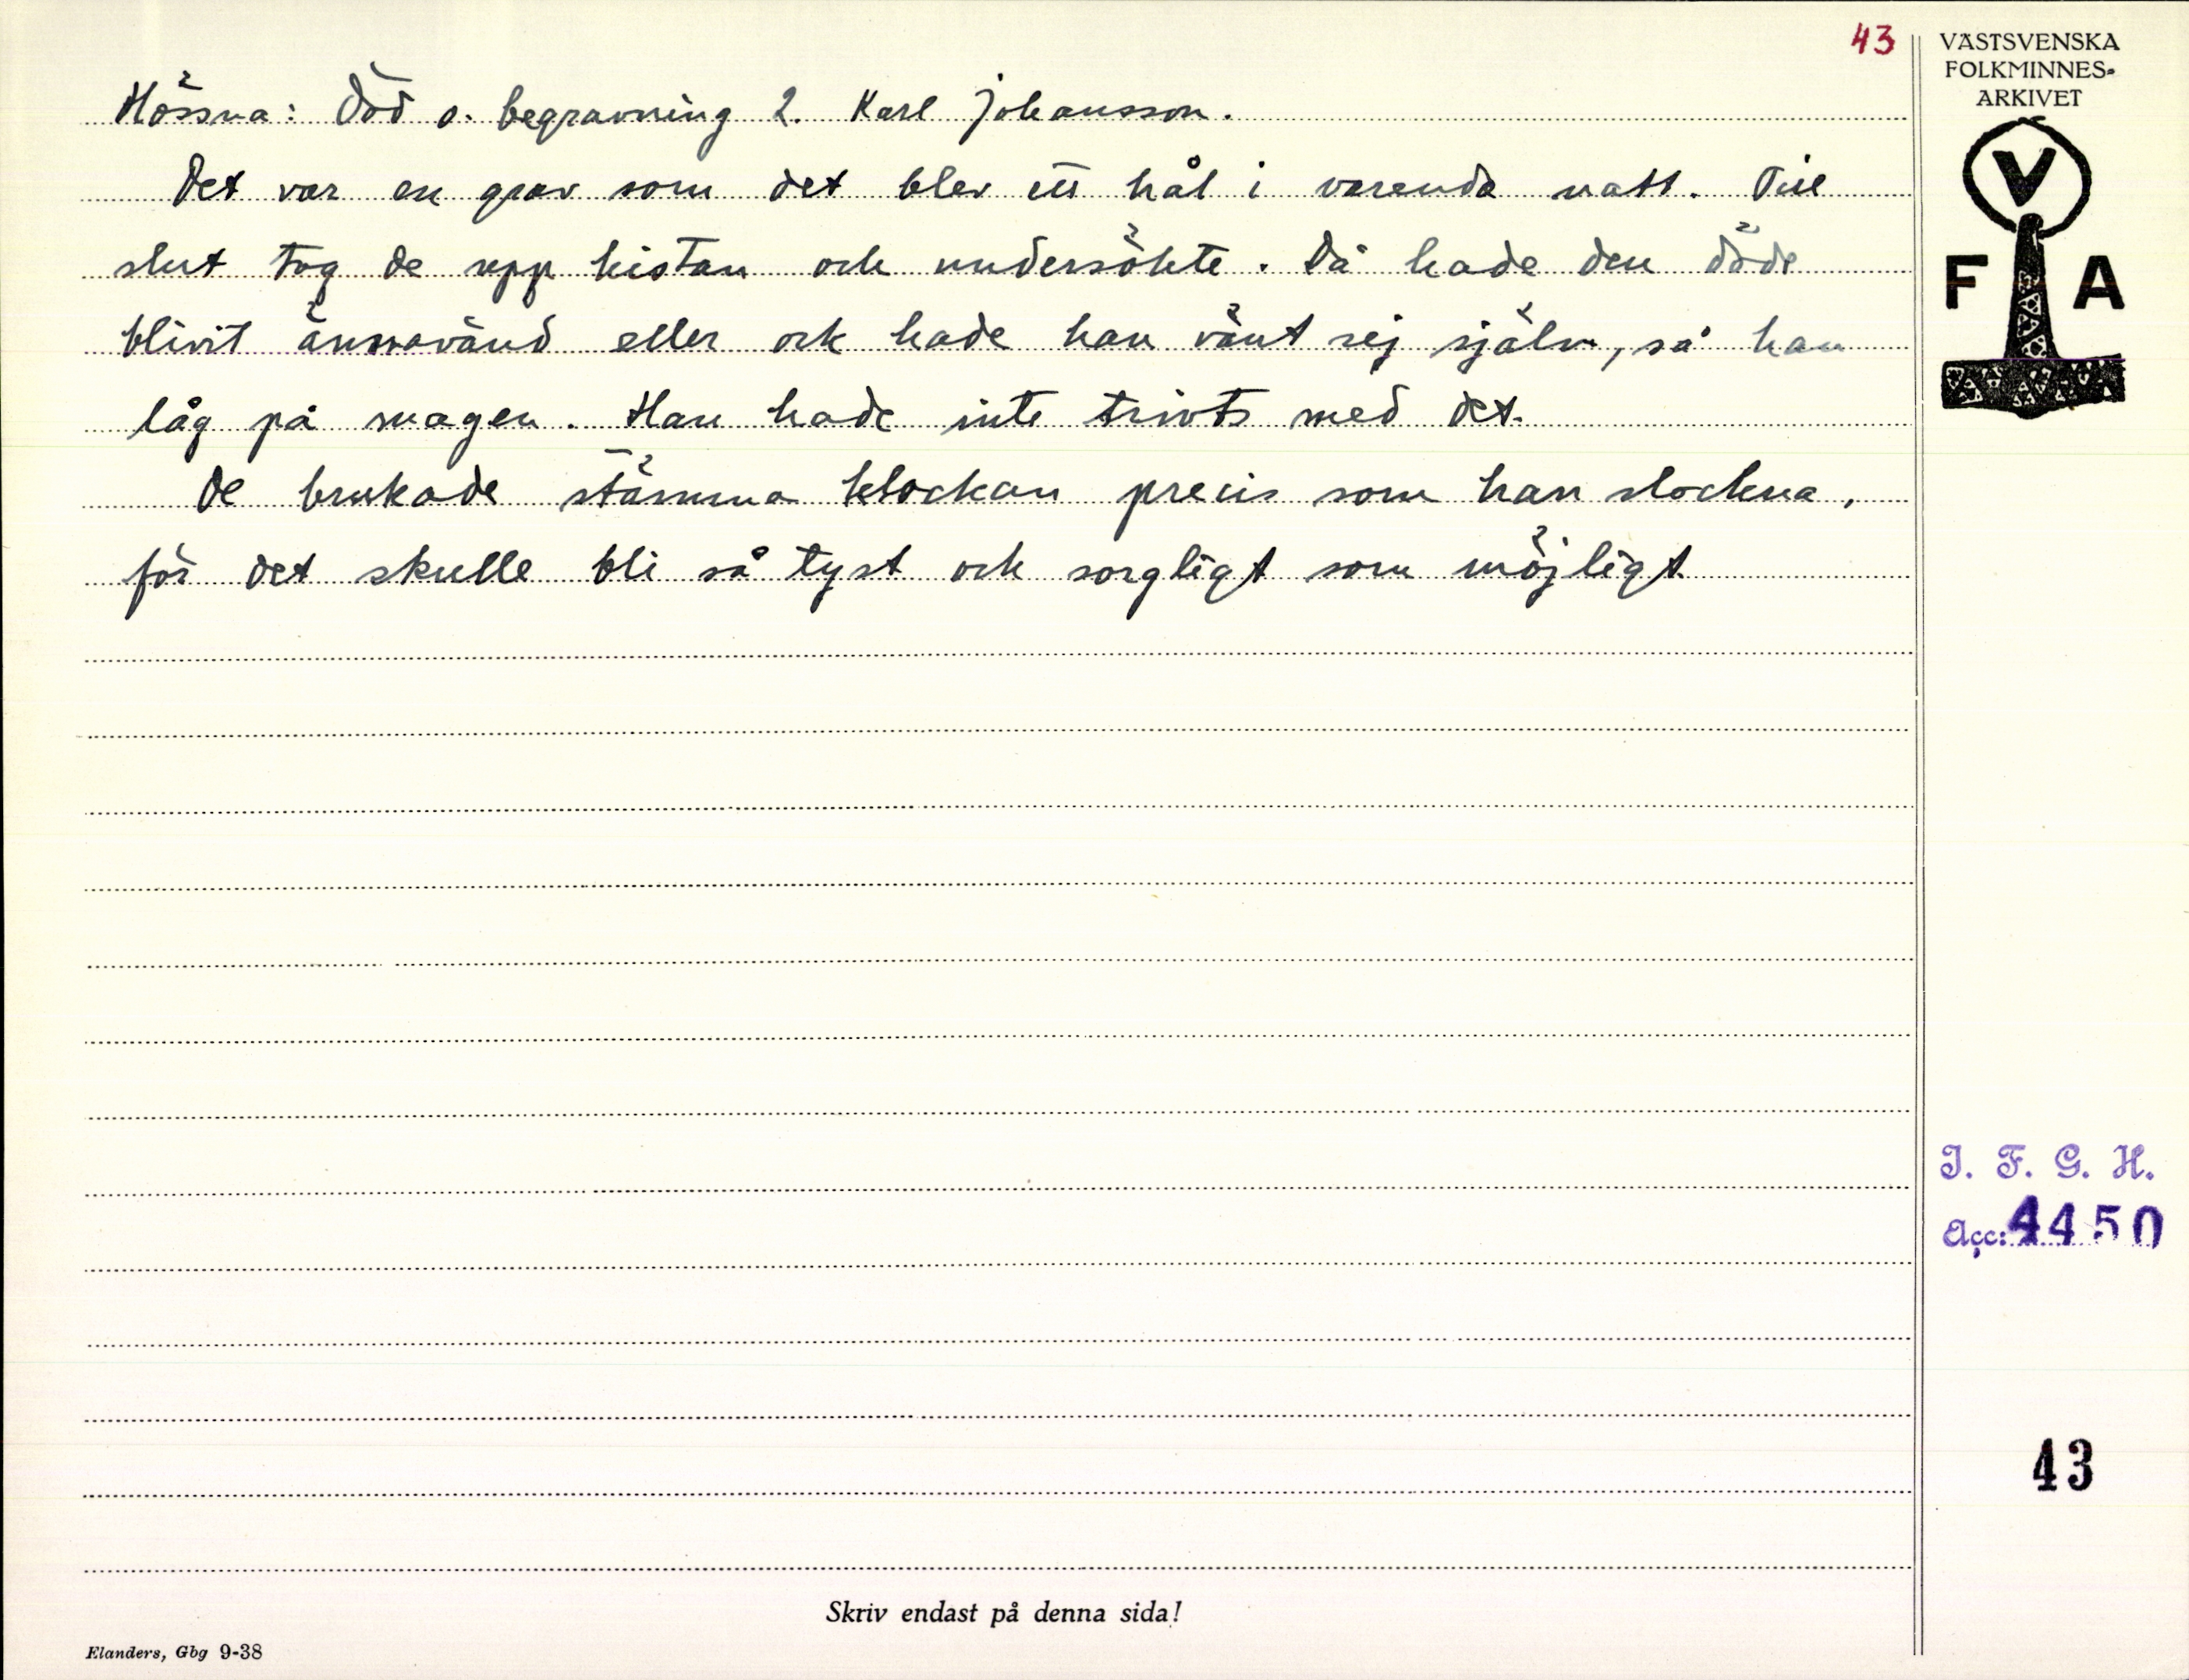 43
VÄSTSVENSKA
FOLKMINNES-
ARKIVET
V
F A
Hössna: Död o. begravning 2. Karl Johansson.
Det var en grav som det blev ett hål i varenda natt. Till
slut tog de upp kistan och undersökte. Då hade den döde
blivit ännavänd eller ock hade han vänt sej själv, så han
låg på magen. Han hade inte trivts med det.
De brukade stämma klockan precis som han slockna,
för det skulle bli så tyst och sorgligt som möjligt
I. F. G. H.
Acc: 4450
43
Skriv endast på denna sida!
Elanders, Gbg 9-38